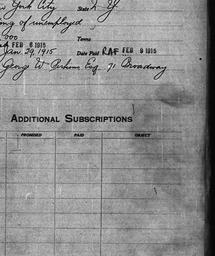 w York City State N. Y.
ing of unemployed
000 Terms
FEB 6 1915
Jan 29, 1915 Date Paid RAF FEB 9 1915
George W. Perkins Esq. 71 Broadway
ADDITIONAL SUBSCRIPTIONS
PROMISED PAID OBJECT